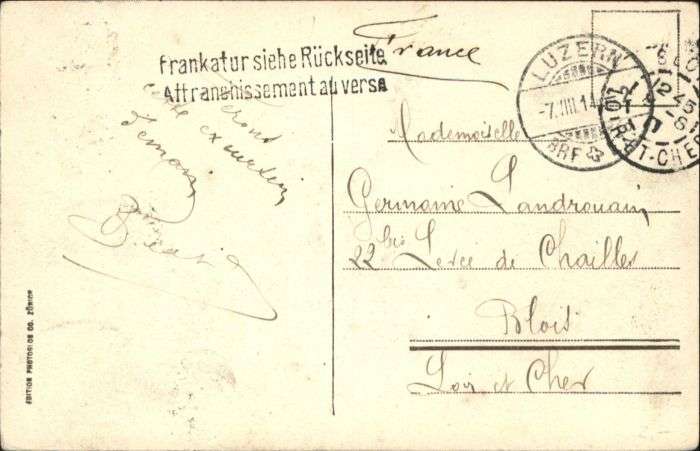 Frankatur siehe Rückseite
Affranchissement au verso
France
LUZERN
BRF
LOIR-ET-CHER
dont
Mademoiselle
Germaine Landrouain
22 bis Levée de Chailles
Blois
Loir et Cher
EDITION PHOTOGLOB CO. ZÜRICH